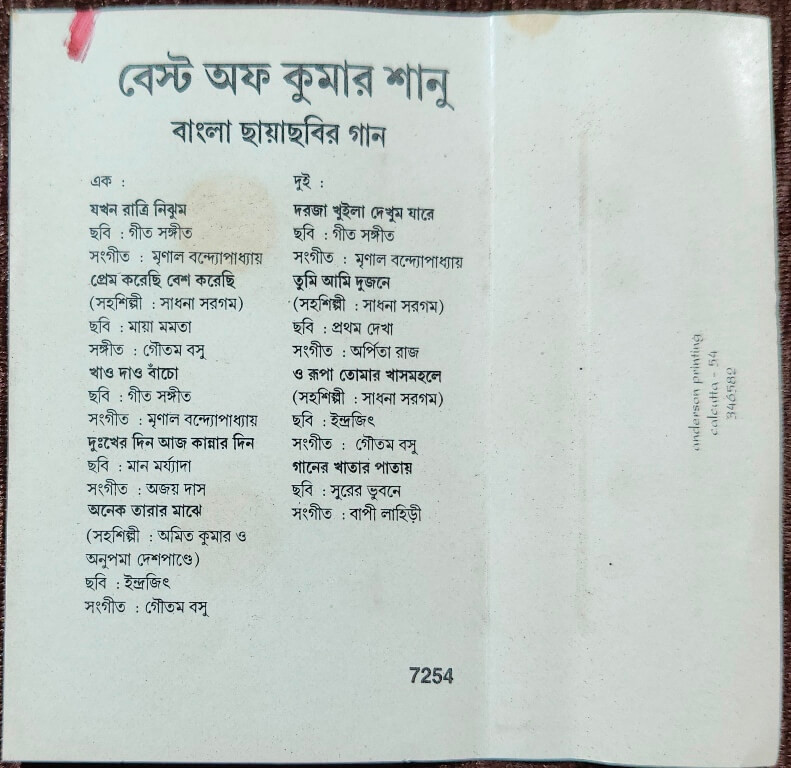 বেস্ট অফ কুমার শানু
বাংলা ছায়াছবির গান
এক :
যখন রাত্রি নিঝুম
ছবি : গীত সঙ্গীত
সংগীত : মৃণাল বন্দ্যোপাধ্যায়
প্রেম করেছি বেশ করেছি
(সহশিল্পী : সাধনা সরগম)
ছবি : মায়া মমতা
সঙ্গীত : গৌতম বসু
খাও দাও বাঁচো
ছবি : গীত সঙ্গীত
সংগীত : মৃণাল বন্দ্যোপাধ্যায়
দুঃখের দিন আজ কান্নার দিন
ছবি : মান মর্য্যাদা
সংগীত : অজয় দাস
অনেক তারার মাঝে
(সহশিল্পী : অমিত কুমার ও
অনুপমা দেশপাণ্ডে)
ছবি : ইন্দ্রজিৎ
সংগীত : গৌতম বসু
দুই :
দরজা খুইলা দেখুম যারে
ছবি : গীত সঙ্গীত
সংগীত : মৃণাল বন্দ্যোপাধ্যায়
তুমি আমি দুজনে
(সহশিল্পী : সাধনা সরগম)
ছবি : প্রথম দেখা
সংগীত : অর্পিতা রাজ
ও রূপা তোমার খাসমহলে
(সহশিল্পী : সাধনা সরগম)
ছবি : ইন্দ্রজিৎ
সংগীত : গৌতম বসু
গানের খাতার পাতায়
ছবি : সুরের ভুবনে
সংগীত : বাপী লাহিড়ী
7254
anderson printing
calcutta - 54
346582